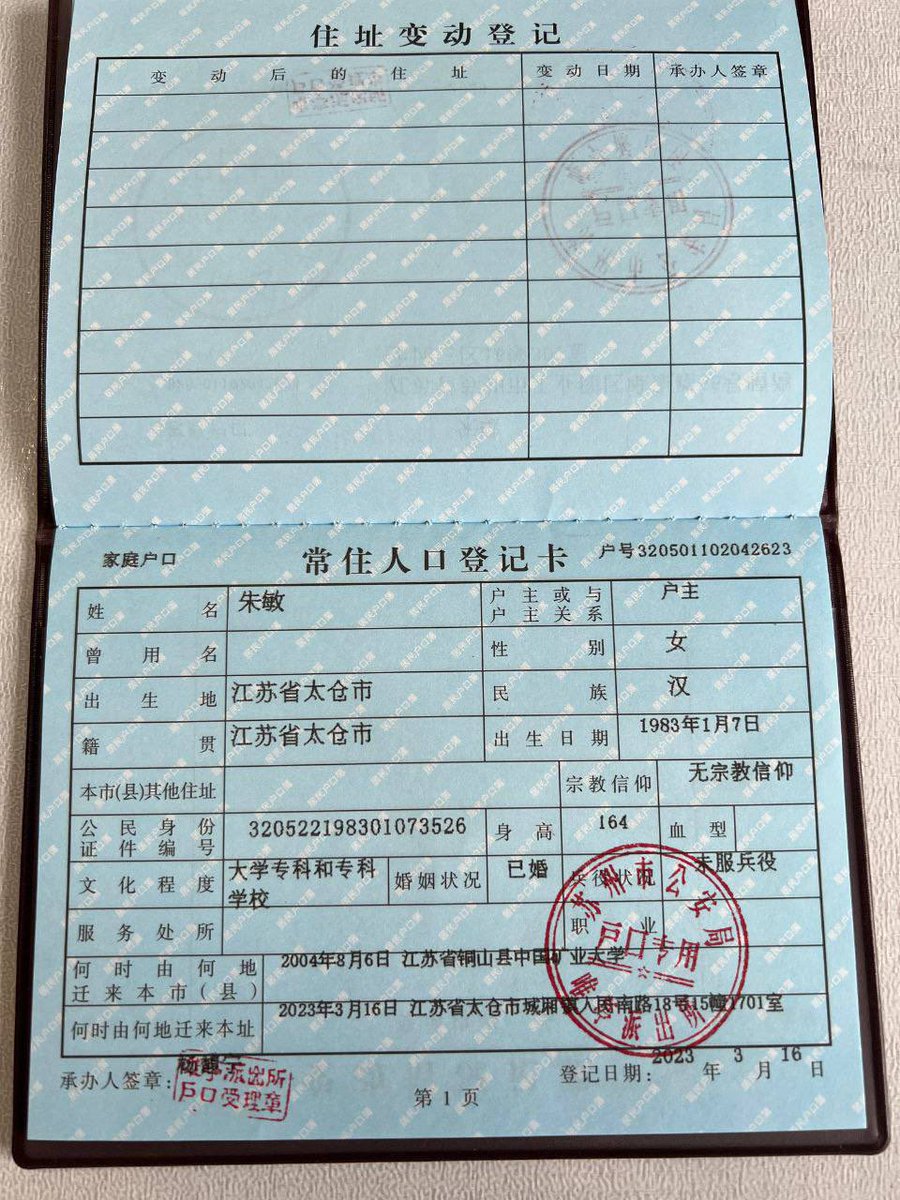 住址变动登记
变动后的住址 变动日期 承办人签章
家庭户口 常住人口登记卡 户号320501102042623
姓名 朱敏 户主或与户主关系 户主
曾用名 性别 女
出生地 江苏省太仓市 民族 汉
籍贯 江苏省太仓市 出生日期 1983年1月7日
本市(县)其他住址 宗教信仰 无宗教信仰
公民身份证件编号 320522198301073526 身高 164 血型
文化程度 大学专科和专科学校 婚姻状况 已婚 兵役状况 未服兵役
服务处所 职业
何时由何地迁来本市(县) 2004年8月6日 江苏省铜山县中国矿业大学
何时由何地迁来本址 2023年3月16日 江苏省太仓市城厢镇人民南路18号15幢1701室
苏州市公安局
户口专用
派出所
承办人签章: 登记日期: 2023年3月16日
派出所
户口受理章
第1页